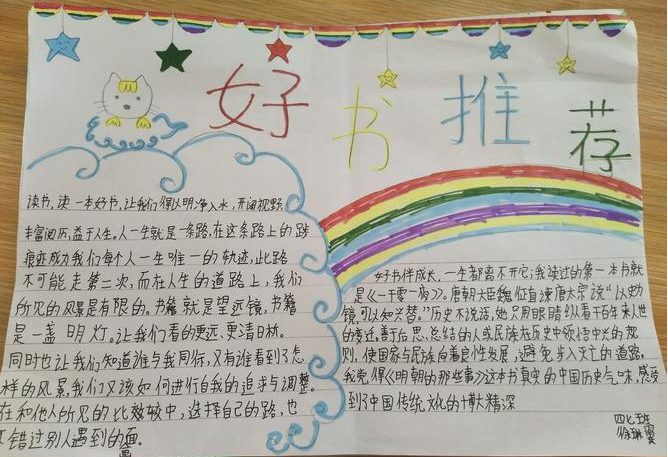 好书推荐
读书,读一本好书,让我们得以明净入水,开阔视野,
丰富阅历,益于人生。人一生就是一条路,在这条路上的跌
痕迹成为我们每个人一生唯一的轨迹,此路
不可能走第二次,而在人生的道路上,我们
所见的风景是有限的。书籍就是望远镜,书籍
是一盏明灯。让我们看的更远、更清日析。
同时也让我们知道谁与我同行,又有谁看到了怎
样的风景,我们又该如何进行自我的追求与调整。
在和他人所见的比较中,选择自己的路,也
错过别人遇到的面。
好书伴成长,一生都离不开它;我读过的第一本书就
是《一千零一夜》。唐朝大臣魏征直谏唐太宗说“以史为
镜,可以知兴替。”历史不说话,她只用眼睛
的变迁,善于后思、总结的人或民族在历史中领悟中兴的规
则,使国家与民族向着良性发展,避免步入灭亡的道路,
我觉得《明朝的那些事》这本书真实的中国历史气味,感受
到了中国传统文化的博大精深
四七班